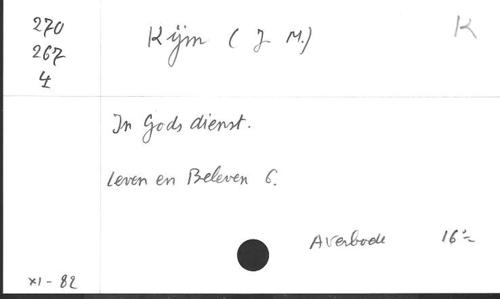 270
267
4
Kijm (J M.)
K
In Gods dienst.
Leven en Beleven 6.
Averbode 16=
XI - 82